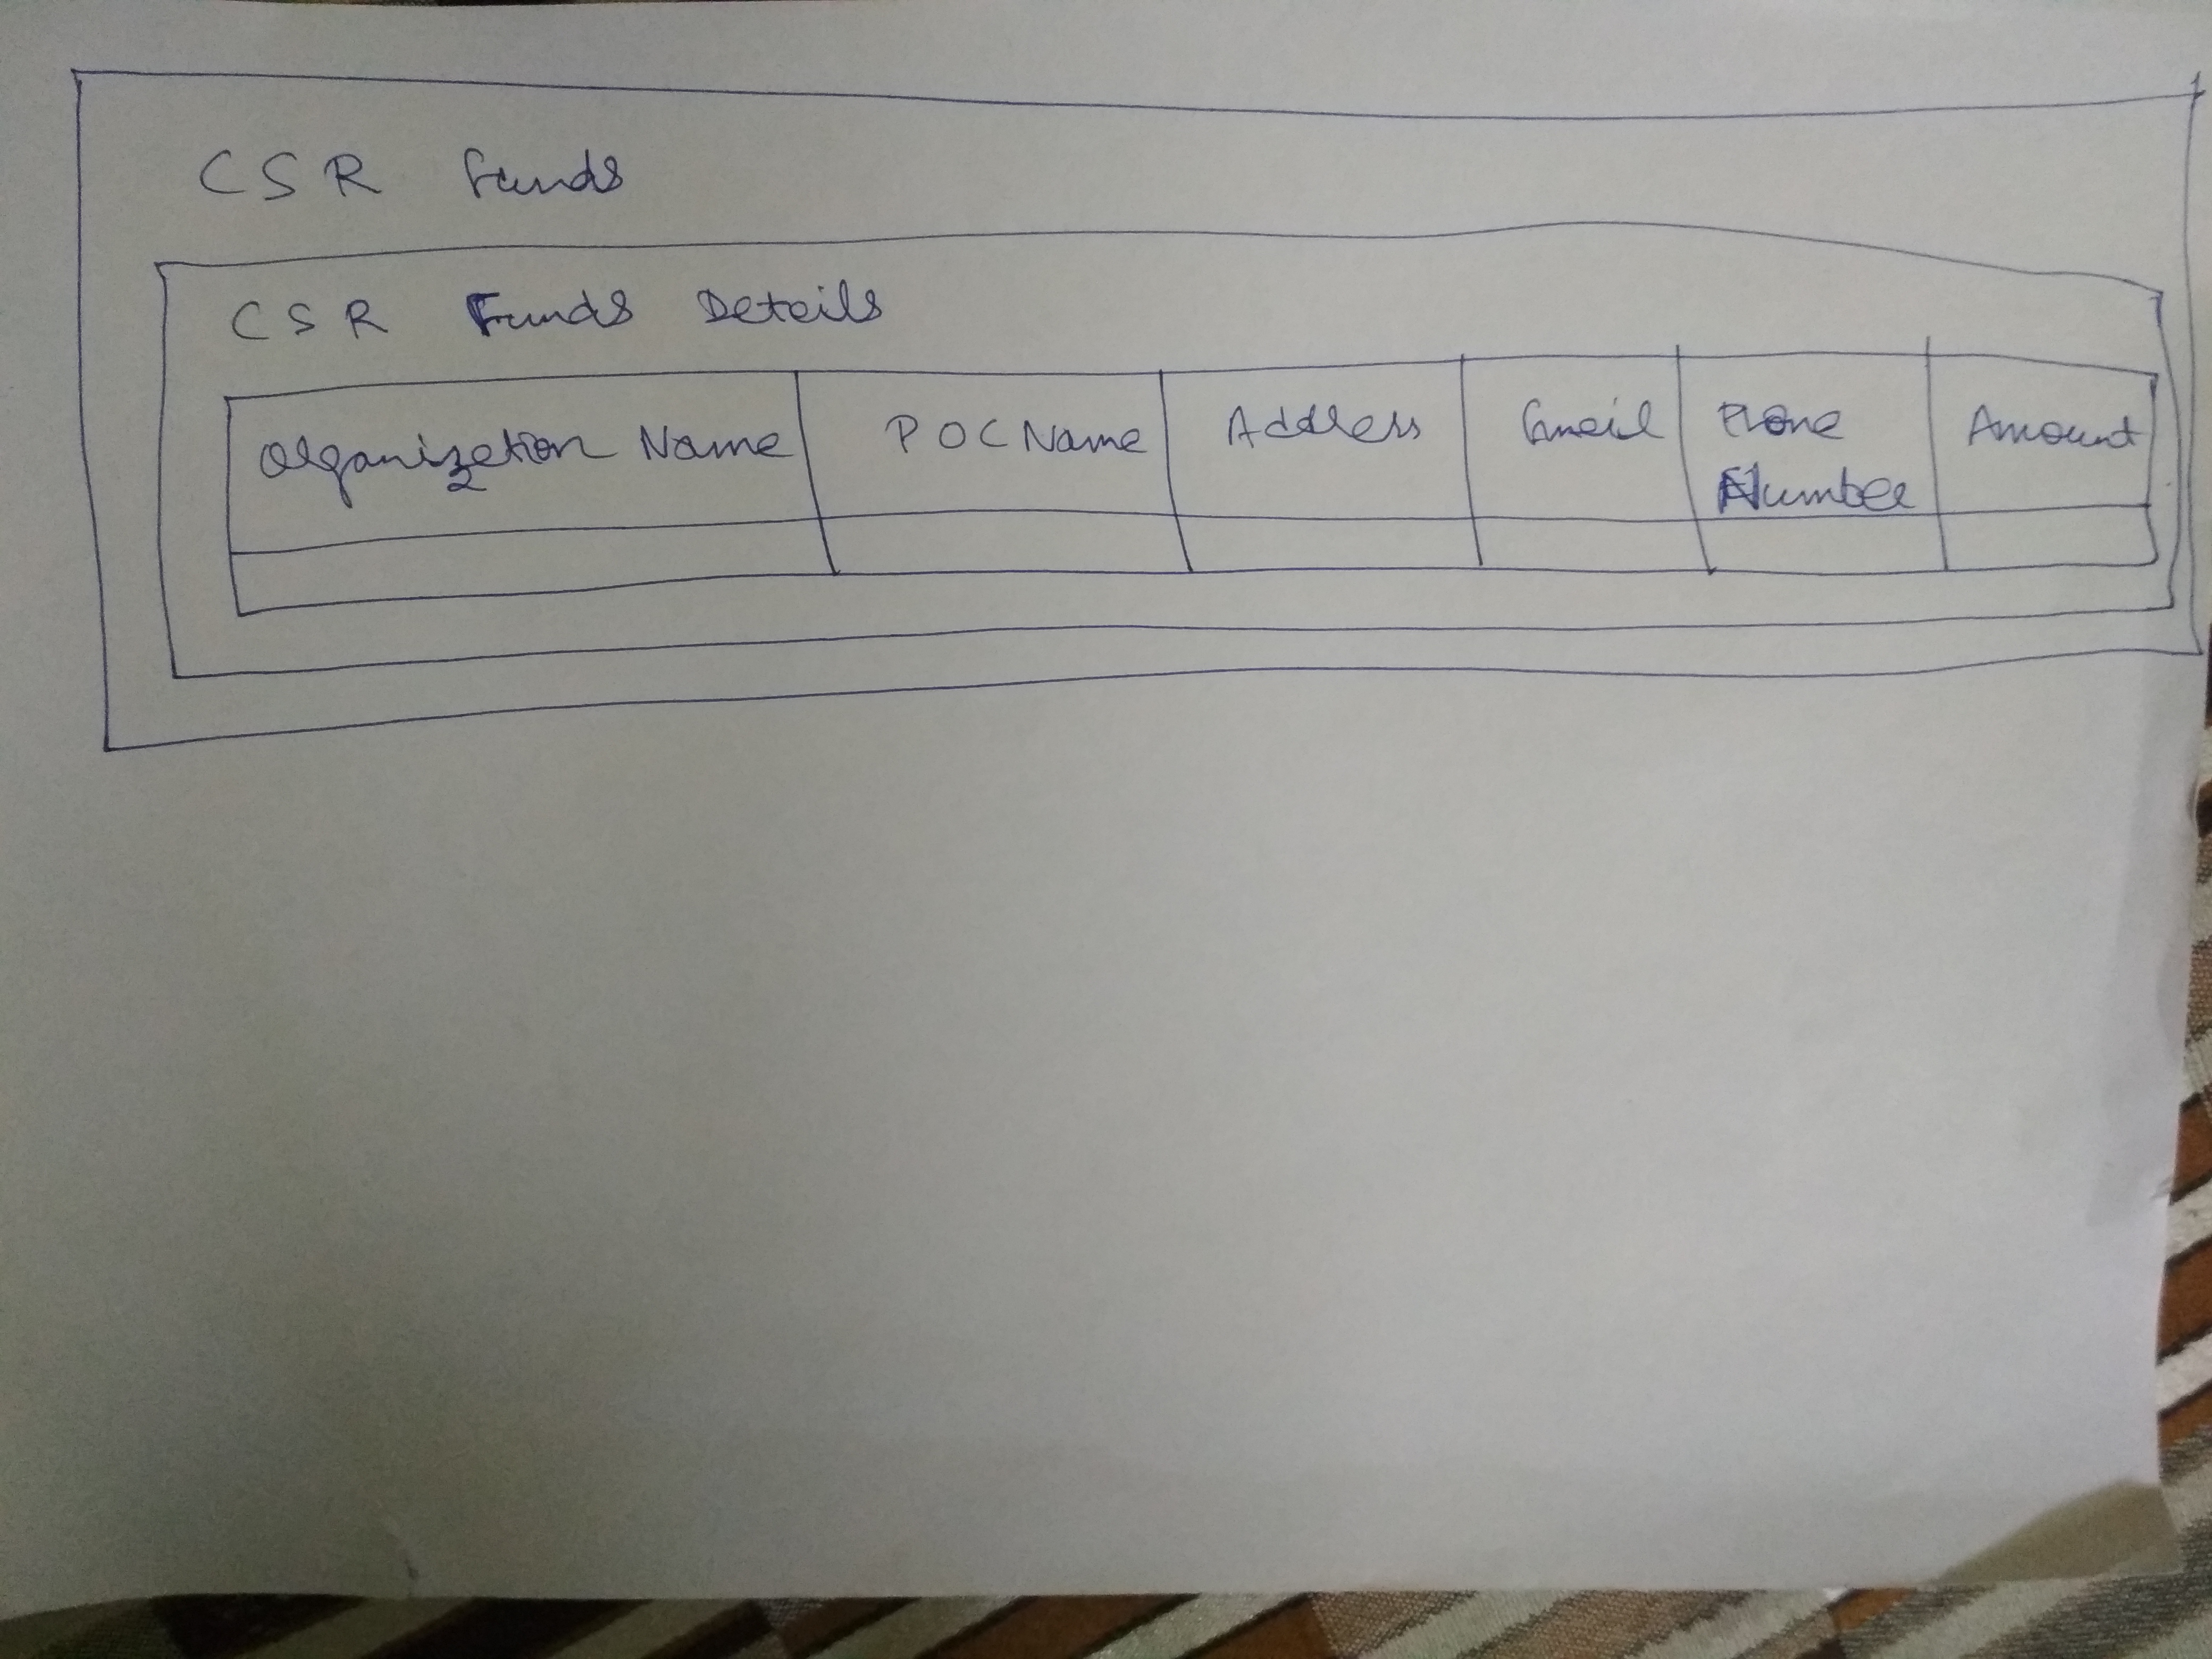 CSR Funds
CSR Funds Details
Organization Name
POC Name
Address
Email
Phone
Number
Amount